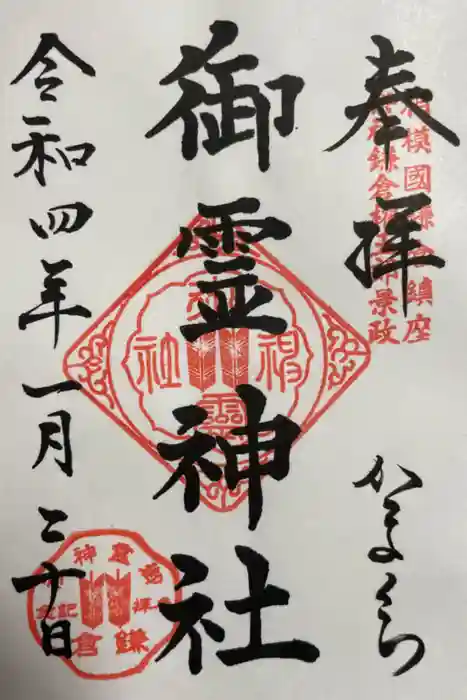 奉拝
かまくら
御霊神社
令和四年一月二十日
相模國鎌倉鎮座
鎌倉権五郎景政
御霊神社
鎌倉